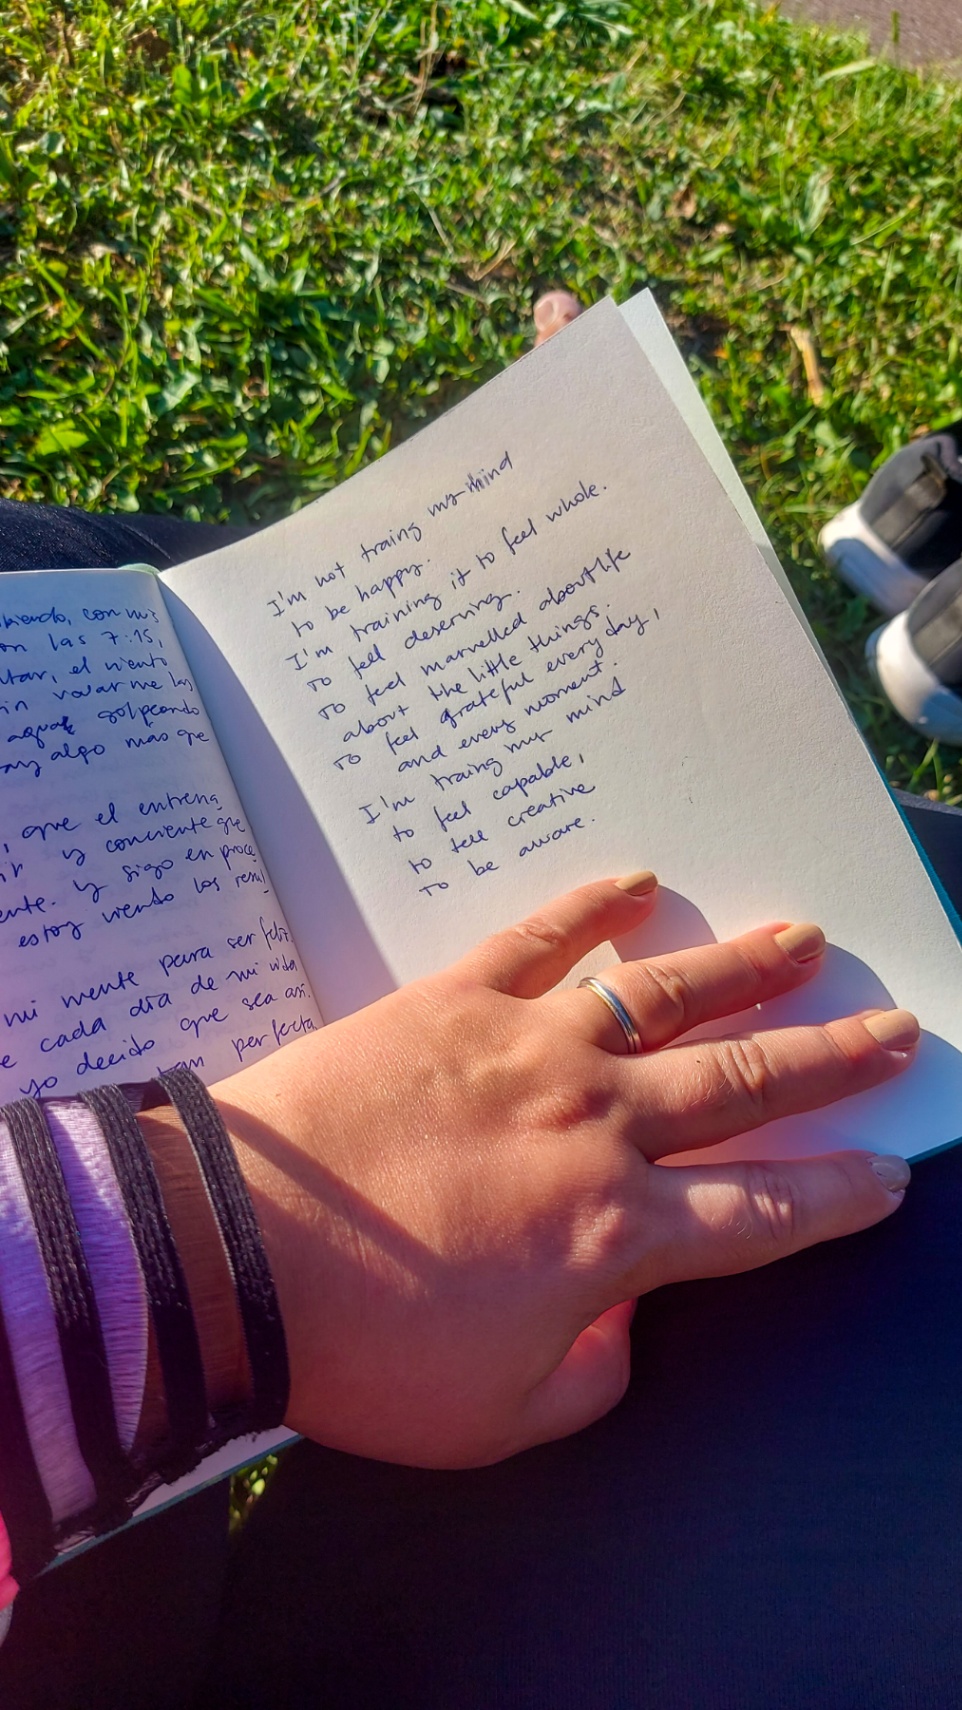 biendo, con mis
on las 7:15,
ntar, el viento
in volarme las
agua golpeando
ay algo mas que
, que el entrena
ir y conciente que
ente. y sigo en proce
estoy viendo los resul
mi mente para ser feliz.
e cada día de mi vida
yo decido que sea así.
tan perfecta
I'm not traing my mind
to be happy.
I'm training it to feel whole.
To fell deserving.
To feel marvelled about life
about the little things.
To feel grateful every day,
and every moment.
I'm traing my mind
to feel capable,
to fell creative
To be aware.